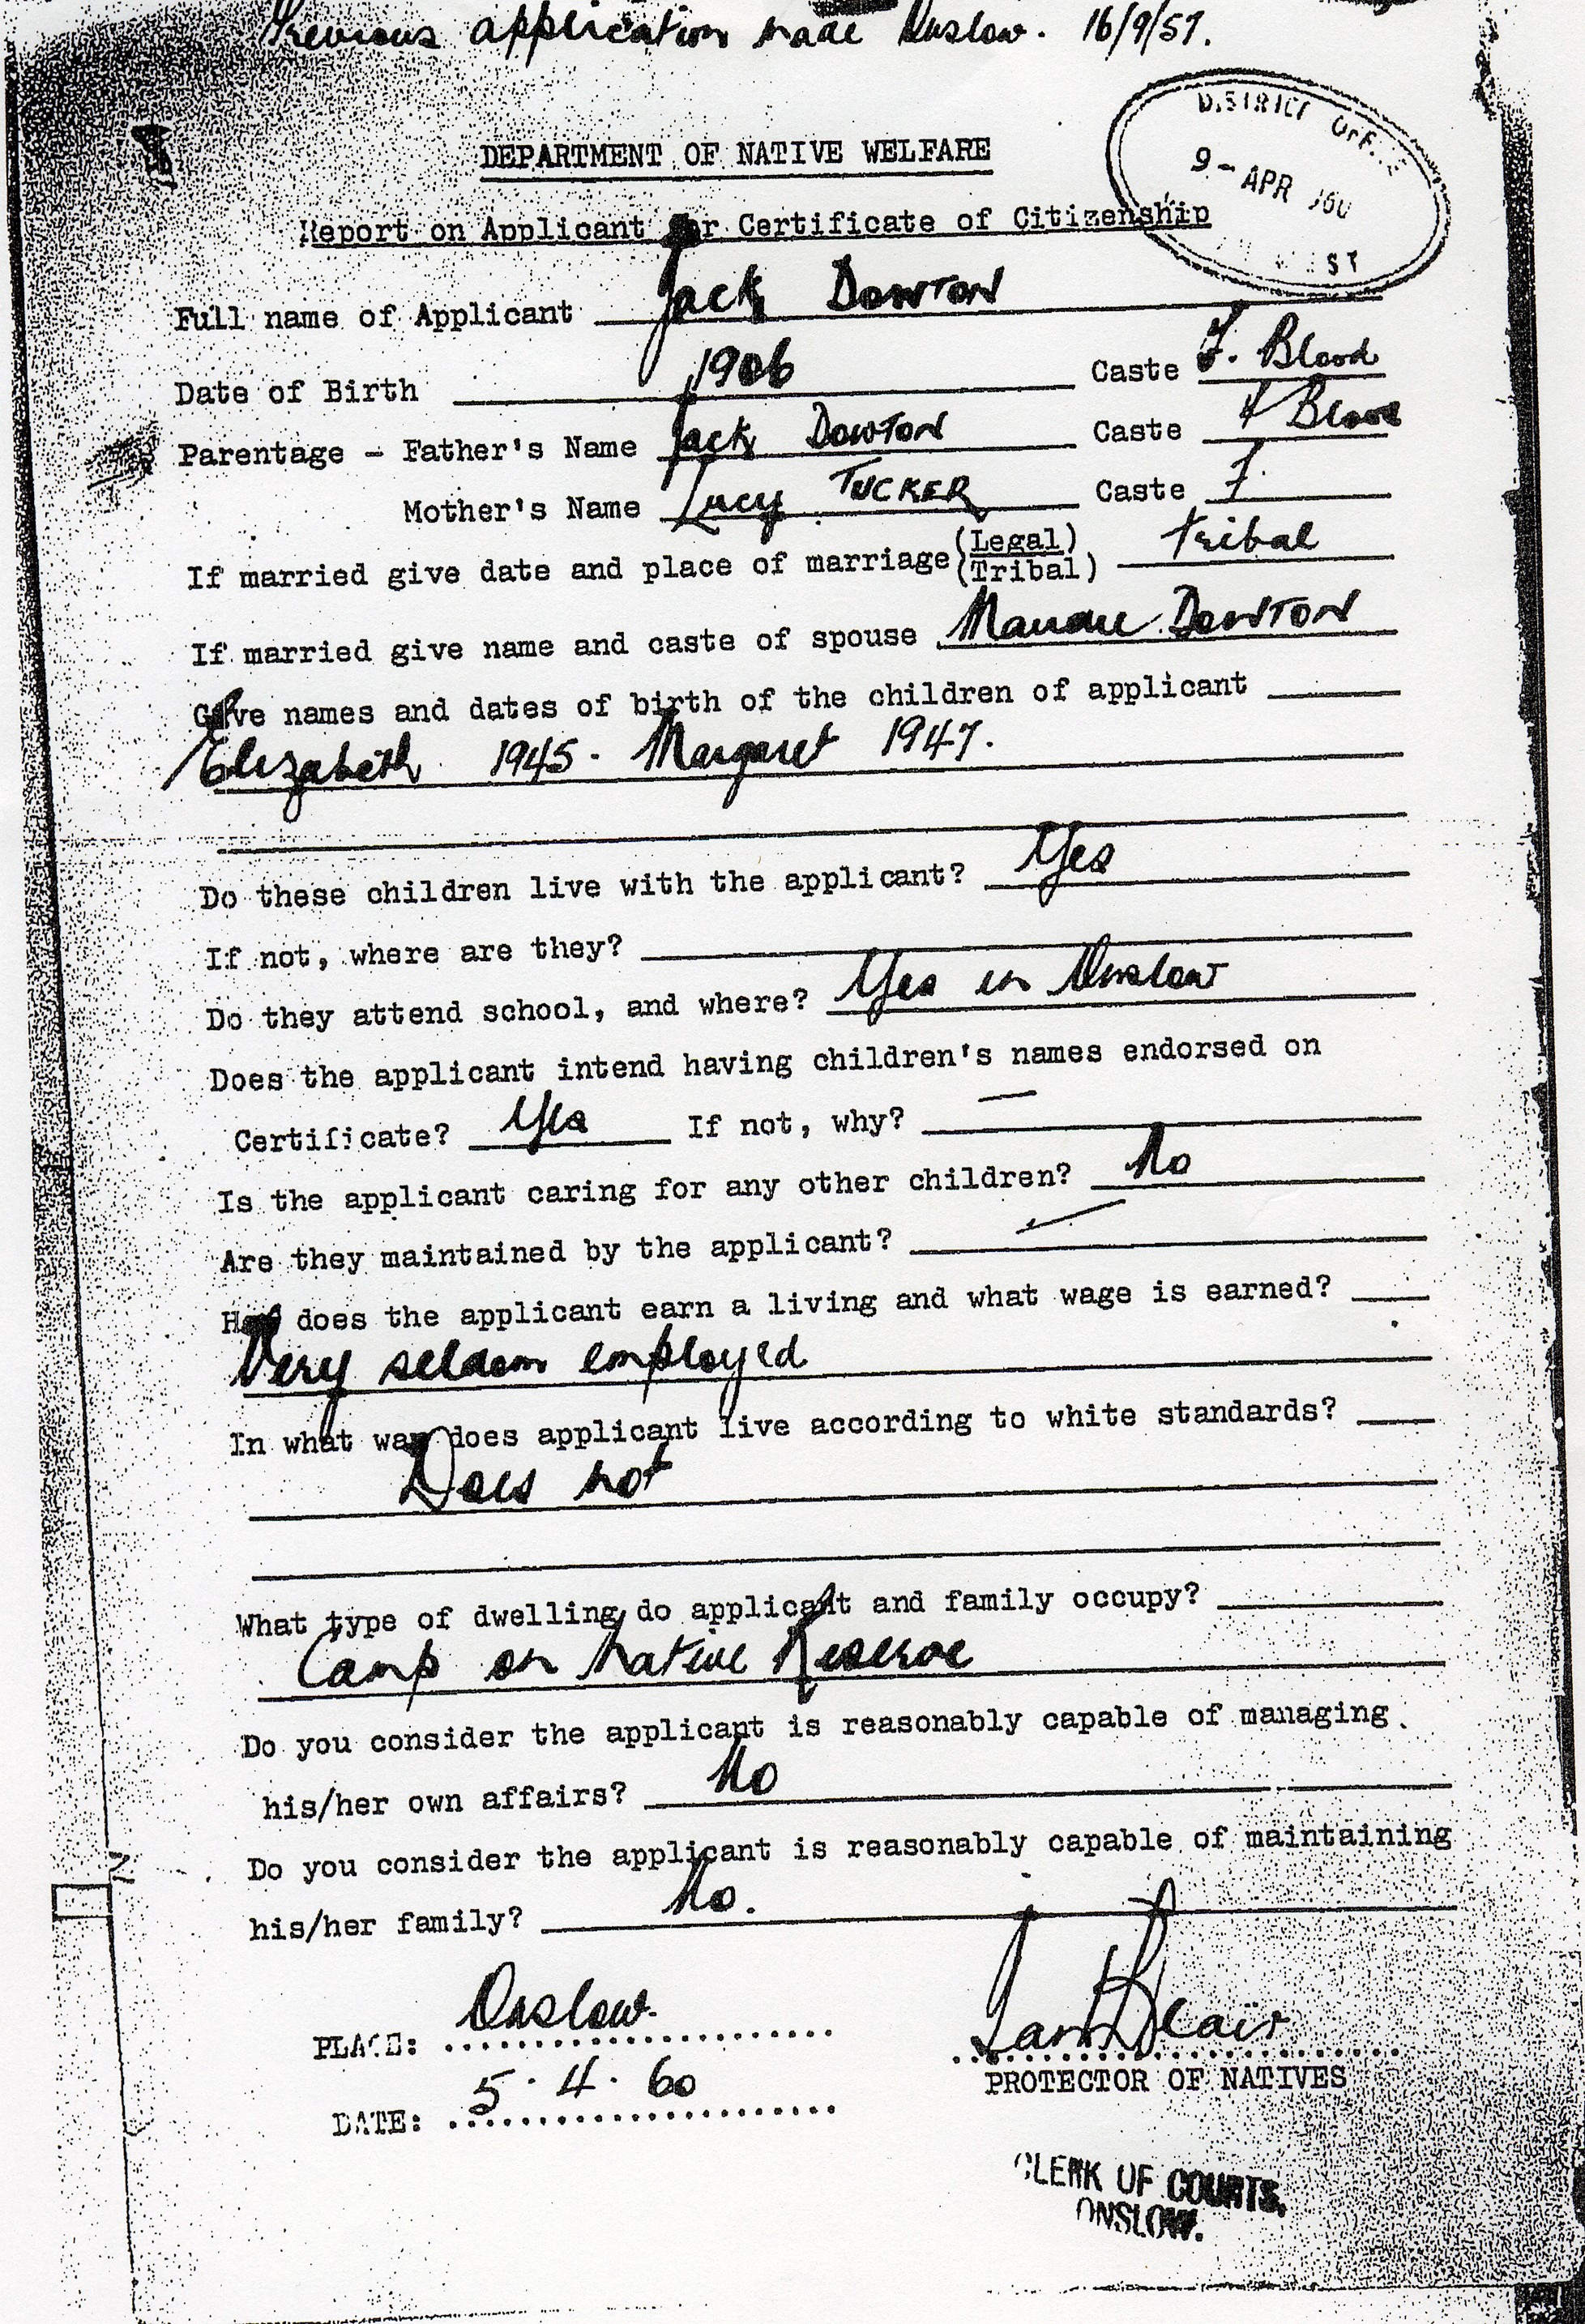 Previous application made Onslow. 16/9/57.
DISTRICT OFF
9 - APR 60
ST
DEPARTMENT OF NATIVE WELFARE
Report on Applicant for Certificate of Citizenship
Full name of Applicant Jack DOWTON
Date of Birth 1906 Caste F. Blood
Parentage - Father's Name Jack DOWTON Caste F Blood
Mother's Name Lucy TUCKER Caste F.
If married give date and place of marriage (Legal) (Tribal) tribal
If married give name and caste of spouse DOWTON
Give names and dates of birth of the children of applicant
Elizabeth 1945 - Margaret 1947.
Do these children live with the applicant? Yes
If not, where are they?
Do they attend school, and where? Yes in Onslow
Does the applicant intend having children's names endorsed on
Certificate? Yes If not, why? —
Is the applicant caring for any other children? No
Are they maintained by the applicant?
How does the applicant earn a living and what wage is earned?
Very seldom employed
In what way does applicant live according to white standards?
Does not
What type of dwelling do applicant and family occupy?
Camp on Native Reserve
Do you consider the applicant is reasonably capable of managing
his/her own affairs? No
Do you consider the applicant is reasonably capable of maintaining
his/her family? No.
PLACE: Onslow.
DATE: 5.4.60
Ian Blair
PROTECTOR OF NATIVES
CLERK OF COURTS,
ONSLOW.